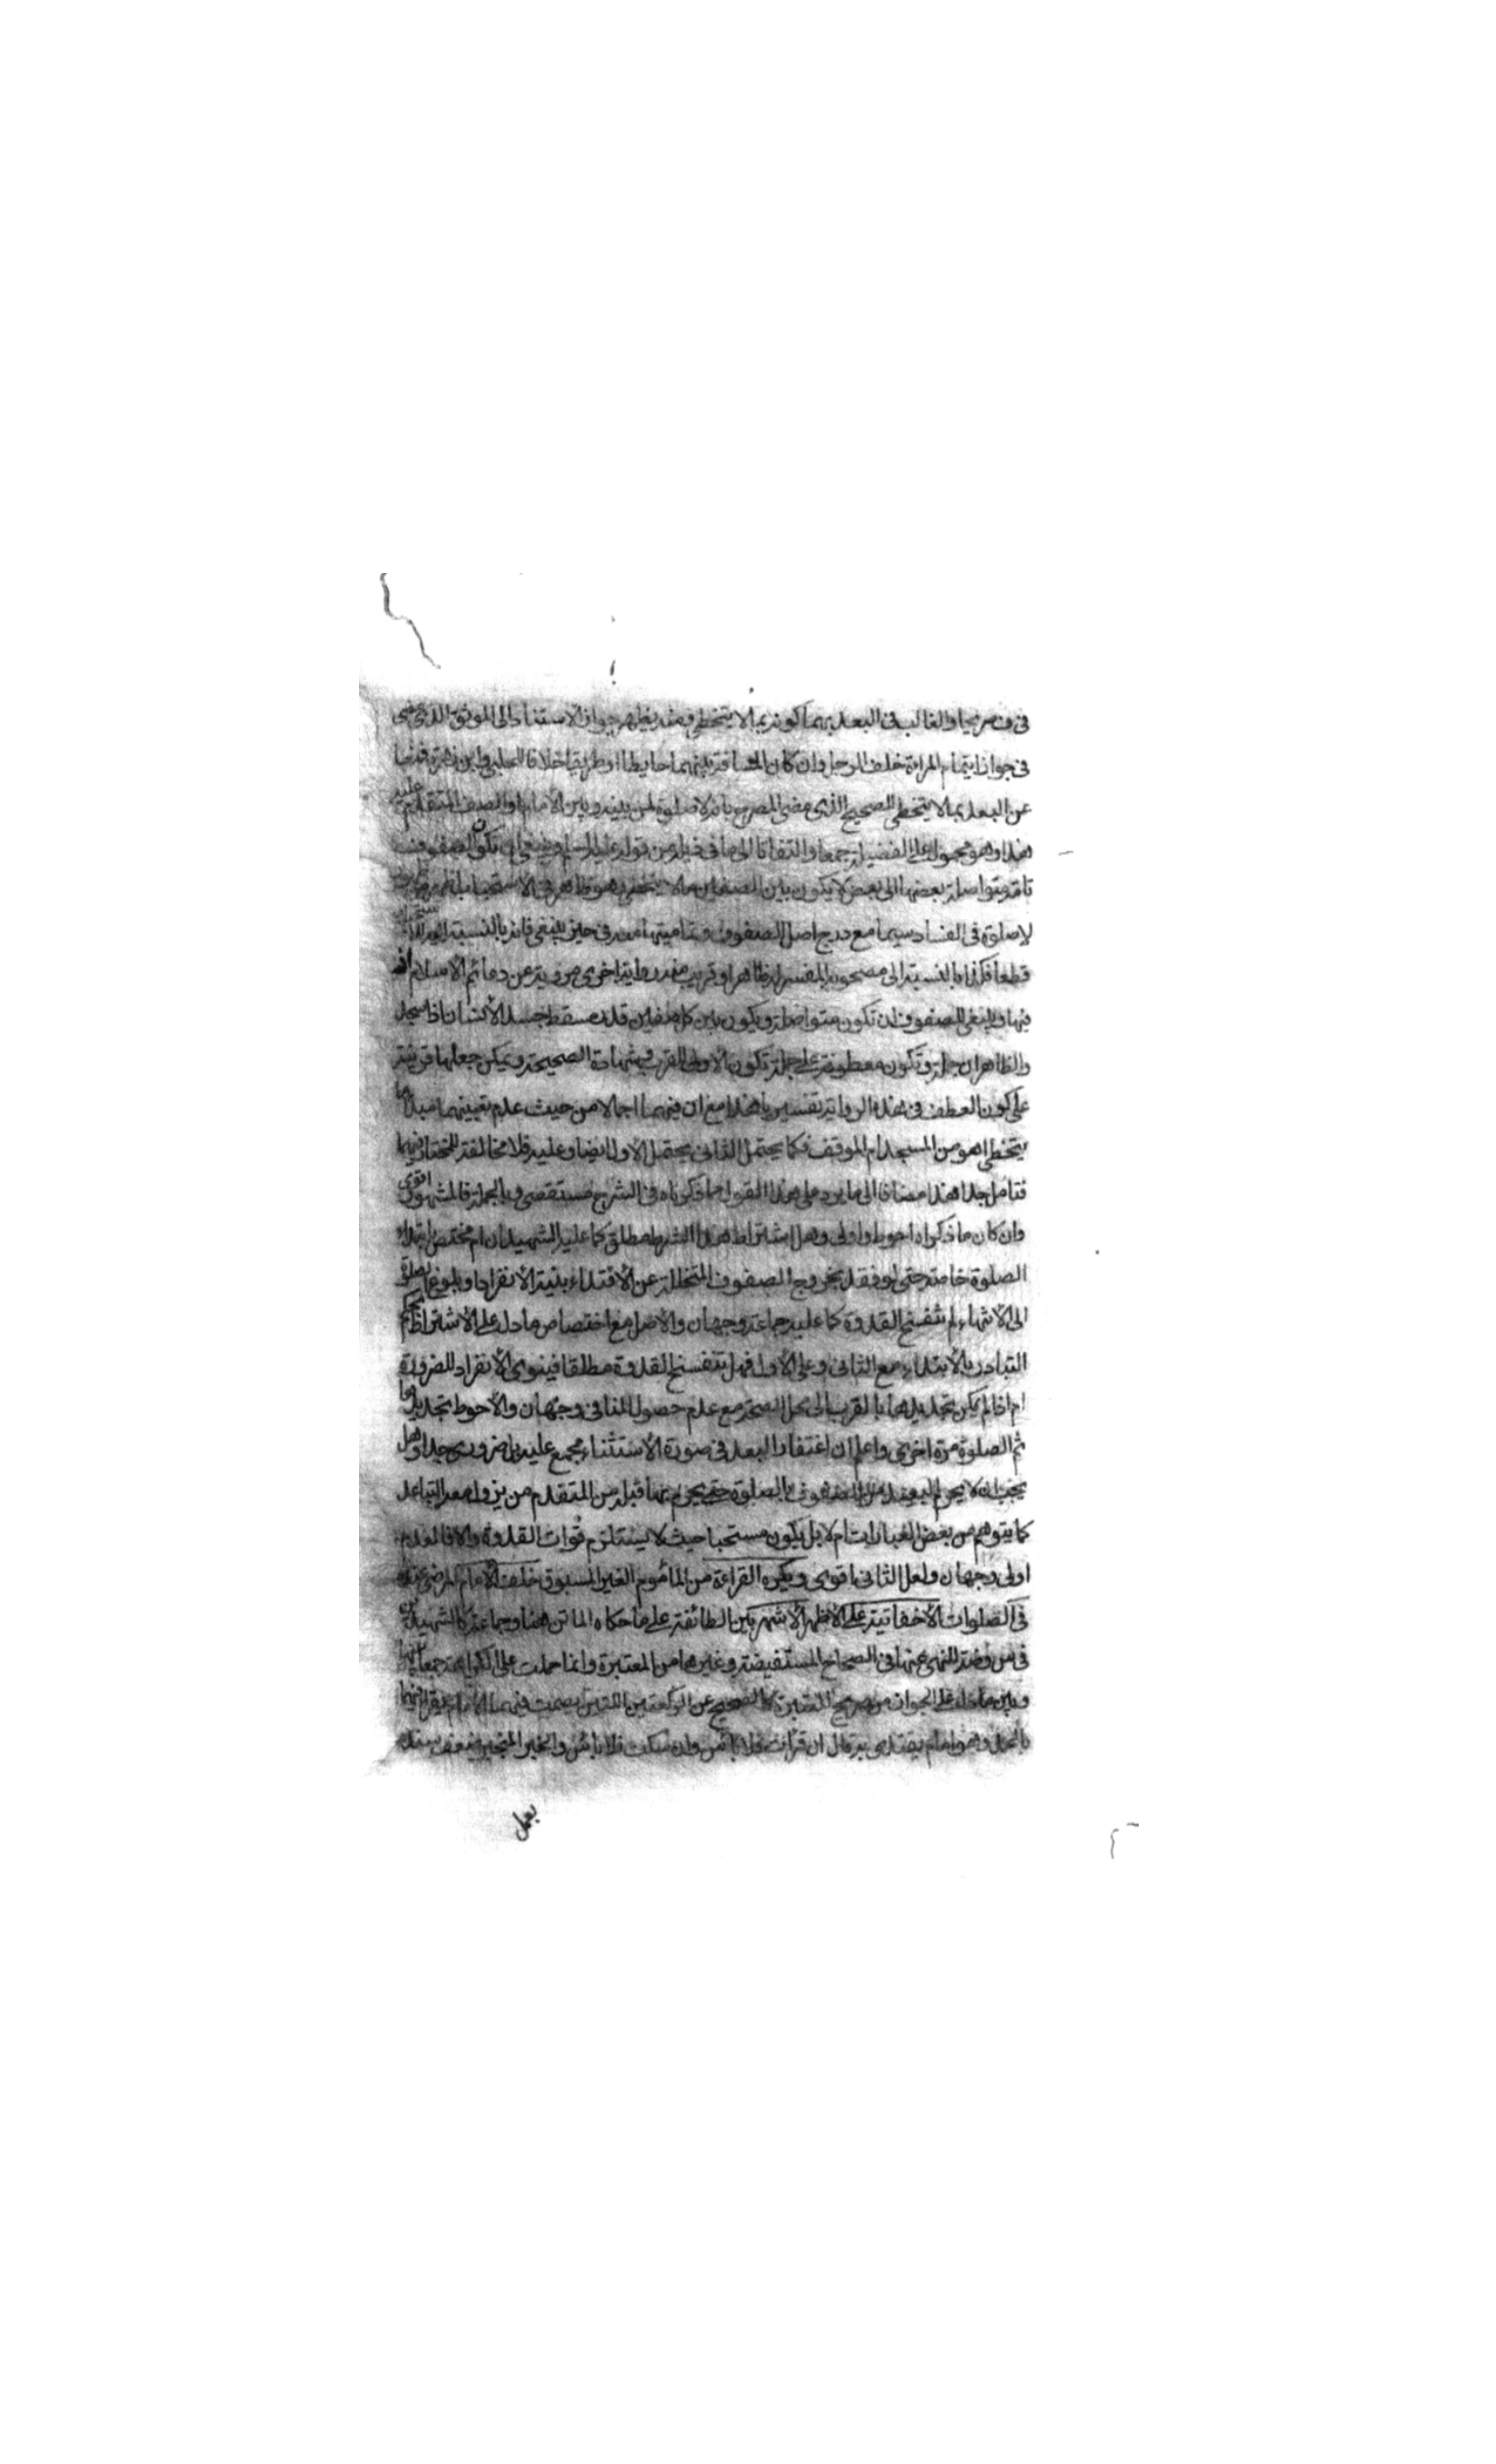 في فرضها والغالب في البعد بهما كونه بما لا يتخطى ومنه يظهر جواز الاستناد الى الموثق الذي مضى
في جواز ايتمام المراءة خلف الرجل وان كان المسافة بينهما حايطا او طريقا خلافا للحلبي وابن زهرة فمنعا
عن البعد بما لا يتخطى للصحيح الذي مضى المصرح بانه لا صلوة لمن بينه وبين الامام او الصف المتقدم عليه
هذا وهو محمول على الفضيلة جمعا والتفاتا الى ما في قبله من قوله عليه السلم وينبغي ان تكون الصفوف
تامة متواصلة بعضها الى بعض لا يكون بين الصفين ما لا يتخطى وهو ظاهر في الاستحباب
لا صلوة في الفساد سيما مع درج اصل الصفوف وتماميتها معه في حيز ينبغي فانه بالنسبة اليه
قطعا فكذا بالنسبة الى مصحوبه المفسر له ظاهرا وقريب منه رواية اخرى مروية عن دعائم الاسلام
فيها وينبغي للصفوف ان تكون متواصلة ويكون بين كل صفين قدر مسقط جسد الأنسان اذا سجد
والظاهر ان جملة وتكون معطوفة على جملة تكون الأولى القرب بشهادة الصحيحة ويمكن جعلها قرينة
على كون العطف في هذه الرواية تفسيريا هذا مع ان فيهما اجمالا من حيث عدم تعيينهما مبدا ما
يتخطى اهو من المسجد ام الموقف فكما يحتمل الثاني يحتمل الأول ايضا وعليه فلا مخالفة للمختار فيهما
فتامل جدا هذا مضافا الى ما يرد على هذا القول مما ذكرناه في الشرح مستقصى وبالجملة فالمشهور اقوى
وان كان ما ذكراه احوط واولى وهل اشتراط هذا الشرط مطلق كما عليه الشهيدان ام مختص بابتداء
الصلوة خاصة حتى لو فقد بخروج الصفوف المتخللة عن الأقتداء بنية الأنفراد او بلوغ صلوة
الى الأنتهاء لم تنفسخ القدوة كما عليه جماعة وجهان والأصل مع اختصاص ما دل على الأشتراط بحكم
التبادر بالأبتداء مع الثاني وعلى الأول فهل تنفسخ القدوة مطلقا فينوي الأنفراد للضرورة
ام اذا لم يمكن تجديدها بالقرب الى محل الصحة مع عدم حصول المنافي وجهان والأحوط تجديدها
ثم الصلوة مرة اخرى واعلم ان اغتفار البعد في صورة الأستثناء مجمع عليه بل ضروري جدا وهل
يجب ان لا يحرم البعيد من الصفوف بالصلوة حتى يحرم بها قبله من المتقدم من يزول معه التباعد
كما يتوهم من بعض العبارات ام لا بل يكون مستحبا حيث لا يستلزم فوات القدوة والا فالعدم
اولى وجهان ولعل الثاني اقوى ويكره القراءة من المأموم الغير المسبوق خلف الأمام المرضي عنده
في الصلوات الأخفاتية على الأظهر الأشهر بين الطائفة على ما حكاه الماتن هنا وجماعة كالشهيدين
في س وضة للنهي عنها في الصحاح المستفيضة وغيرها من المعتبرة وانما حملت على الكراهة جمعا بينها
وبين ما دل على الجواز من صريح المعتبرة كالصحيح عن الركعتين اللتين يصمت فيهما الامام ايقرا فيهما
بالحمد وهو امام يقتدى به قال ان قرأت فلا بأس وان سكت فلا بأس والخبر المنجبر ضعف سنده
بعمل